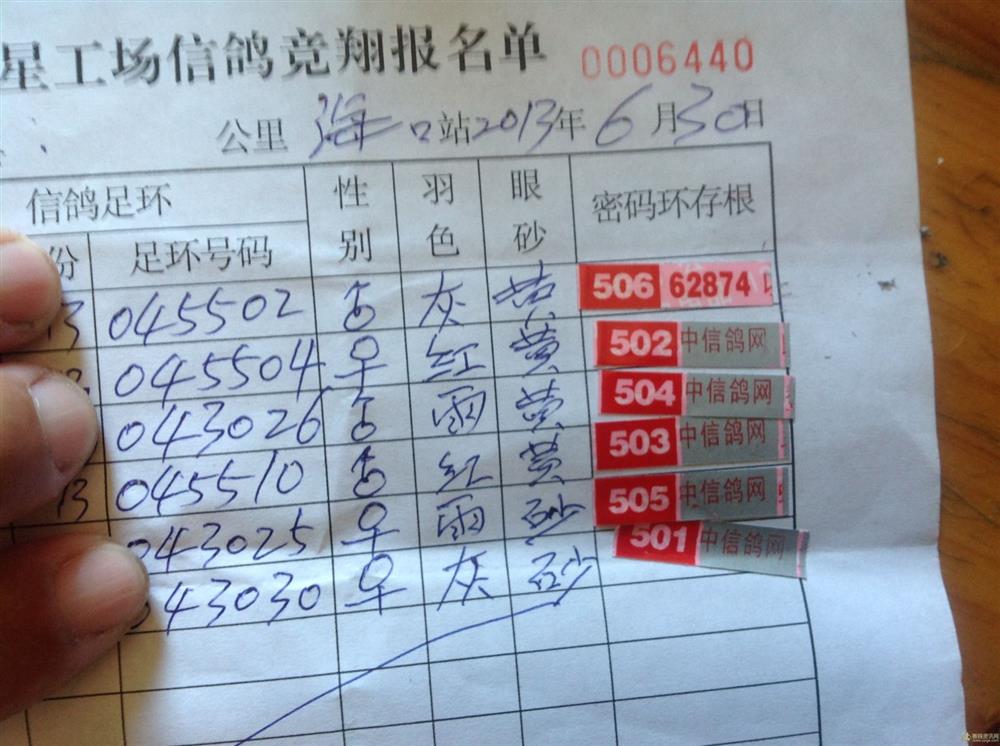 星工场信鸽竞翔报名单 0006440
公里 海口站2013年6月30日
信鸽足环 性别 羽色 眼砂 密码环存根
份 足环号码
13 045502 灰 黄 506 62874
045504 红 黄 502 中信鸽网
043026 雨 黄 504 中信鸽网
13 045510 红 黄 503 中信鸽网
043025 雨 砂 505 中信鸽网
043030 灰 砂 501 中信鸽网